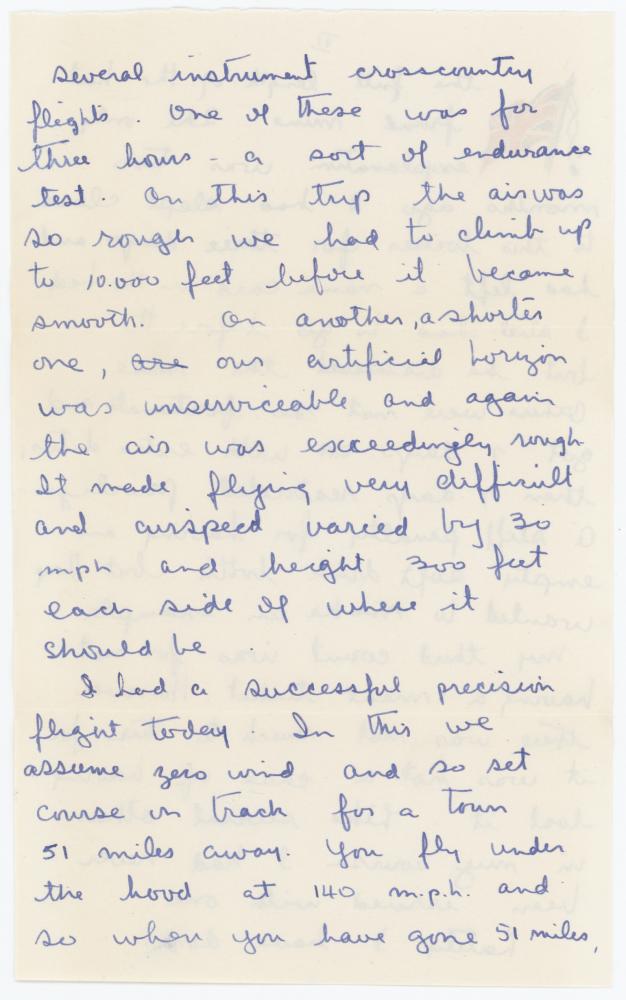 several instrument crosscountry
flights. One of these was for
three hours - a sort of endurance
test. On this trip the air was
so rough we had to climb up
to 10.000 feet before it became
smooth. On another, a shorter
one, are our artificial horizon
was unserviceable and again
the air was exceedingly rough.
It made flying very difficult
and airspeed varied by 30
mph and height 300 feet
each side of where it
should be.
I had a successful precision
flight today In this we
assume zero wind and so set
course on track for a town
51 miles away. You fly under
the hood at 140 m.p.h. and
so when you have gone 51 miles,